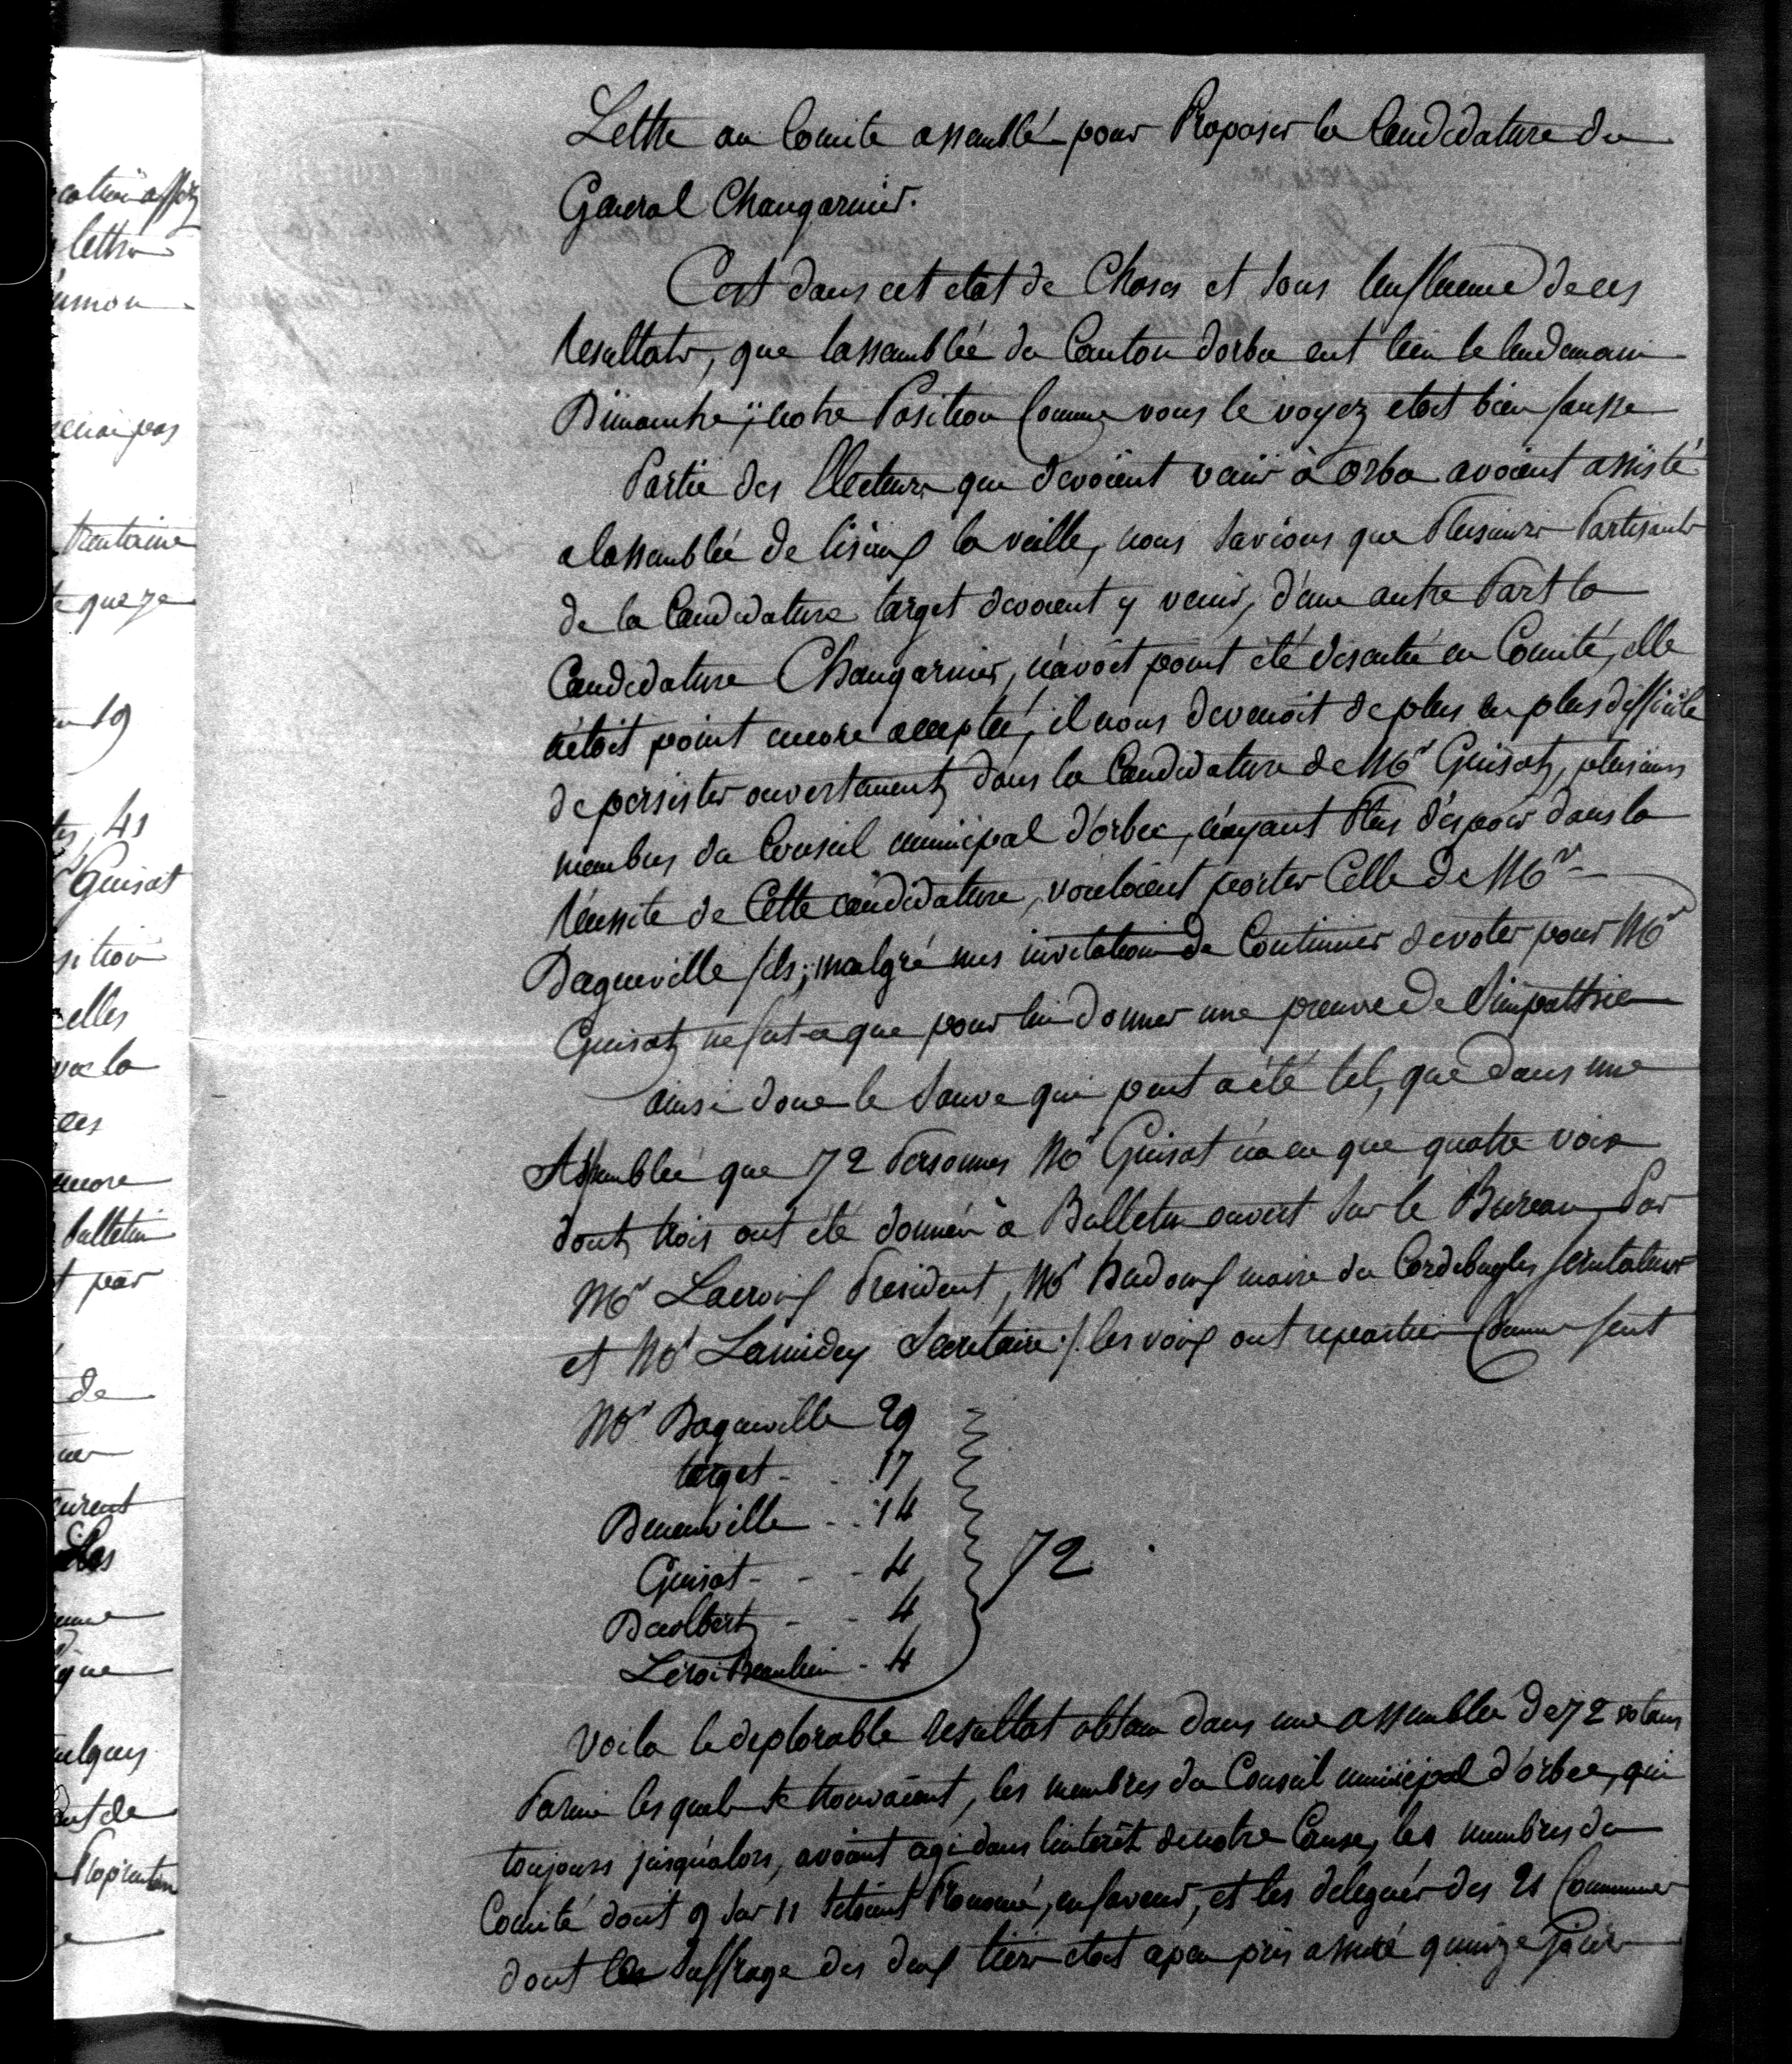 Lettre au Comite assemblé pour Proposer la Candidature du
General Changarnier.
C'est dans cet etat de Choses et sous l'influence de ces
resultats, que l'assemblée du Canton d'orbec eut lieu le lendemain
Dimanche ; notre Position Comme vous le voyez etoit bien fausse
Partie des Electeurs qui devoient venir à Orbec avoient assisté
a lassemblée de lisieux la veille, nous savions que Plusieurs Partisants
de la Candidature target devoient y venir, d'une autre Part la
Candidature Changarnier, n'avoit point été discutée en Comité, elle
n'étoit point encore acceptée, il nous devenoit de plus en plus difficile
de persister ouvertement dans la Candidature de Mr Guisot, plusieurs
membres du Conseil municipal d'orbec, n'ayant Plus d'espoir dans la
réussite de Cette candidature, vouloient porter Celle de Mr
Dagueville fils ; malgré mes invitations de Continuer de voter pour Mr
Guisot ne fut-ce que pour lui donner une preuve de Simpathie
ainsi donc le sauve qui peut a été tel, que dans une
Assemblée que 72 Personnes Mr Guisot n'a eu que quatre voix
dont trois ont été données à Bulletin ouvert sur le Bureau, Par
Mr Lacroix President, Mr hudoux maire de Cordebugle Scrutateur
et Mr Lamidey Secretaire /. les voix ont reparties Comme suit
Mr Dagueville 29
target - . . 17
Beneville . . 14
Guisot - - - 4
Daolbert - - 4
Leroi Beaulieu - 4
72
Voila le deplorable resultat obtenu dans une assemblée de 72 votans
Parmi lesquels se trouvoient, les membres du Conseil municipal d'orbec, qui
toujours jusqu'alors, avoient agi dans l'interêt de notre Cause, les membres du
Comité dont 9 sur 11 s'etoient Prononcé, en faveur, et les delegués des 21 Communes
dont les suffrage des deux tiers etoit a peu près assuré quinze Jours